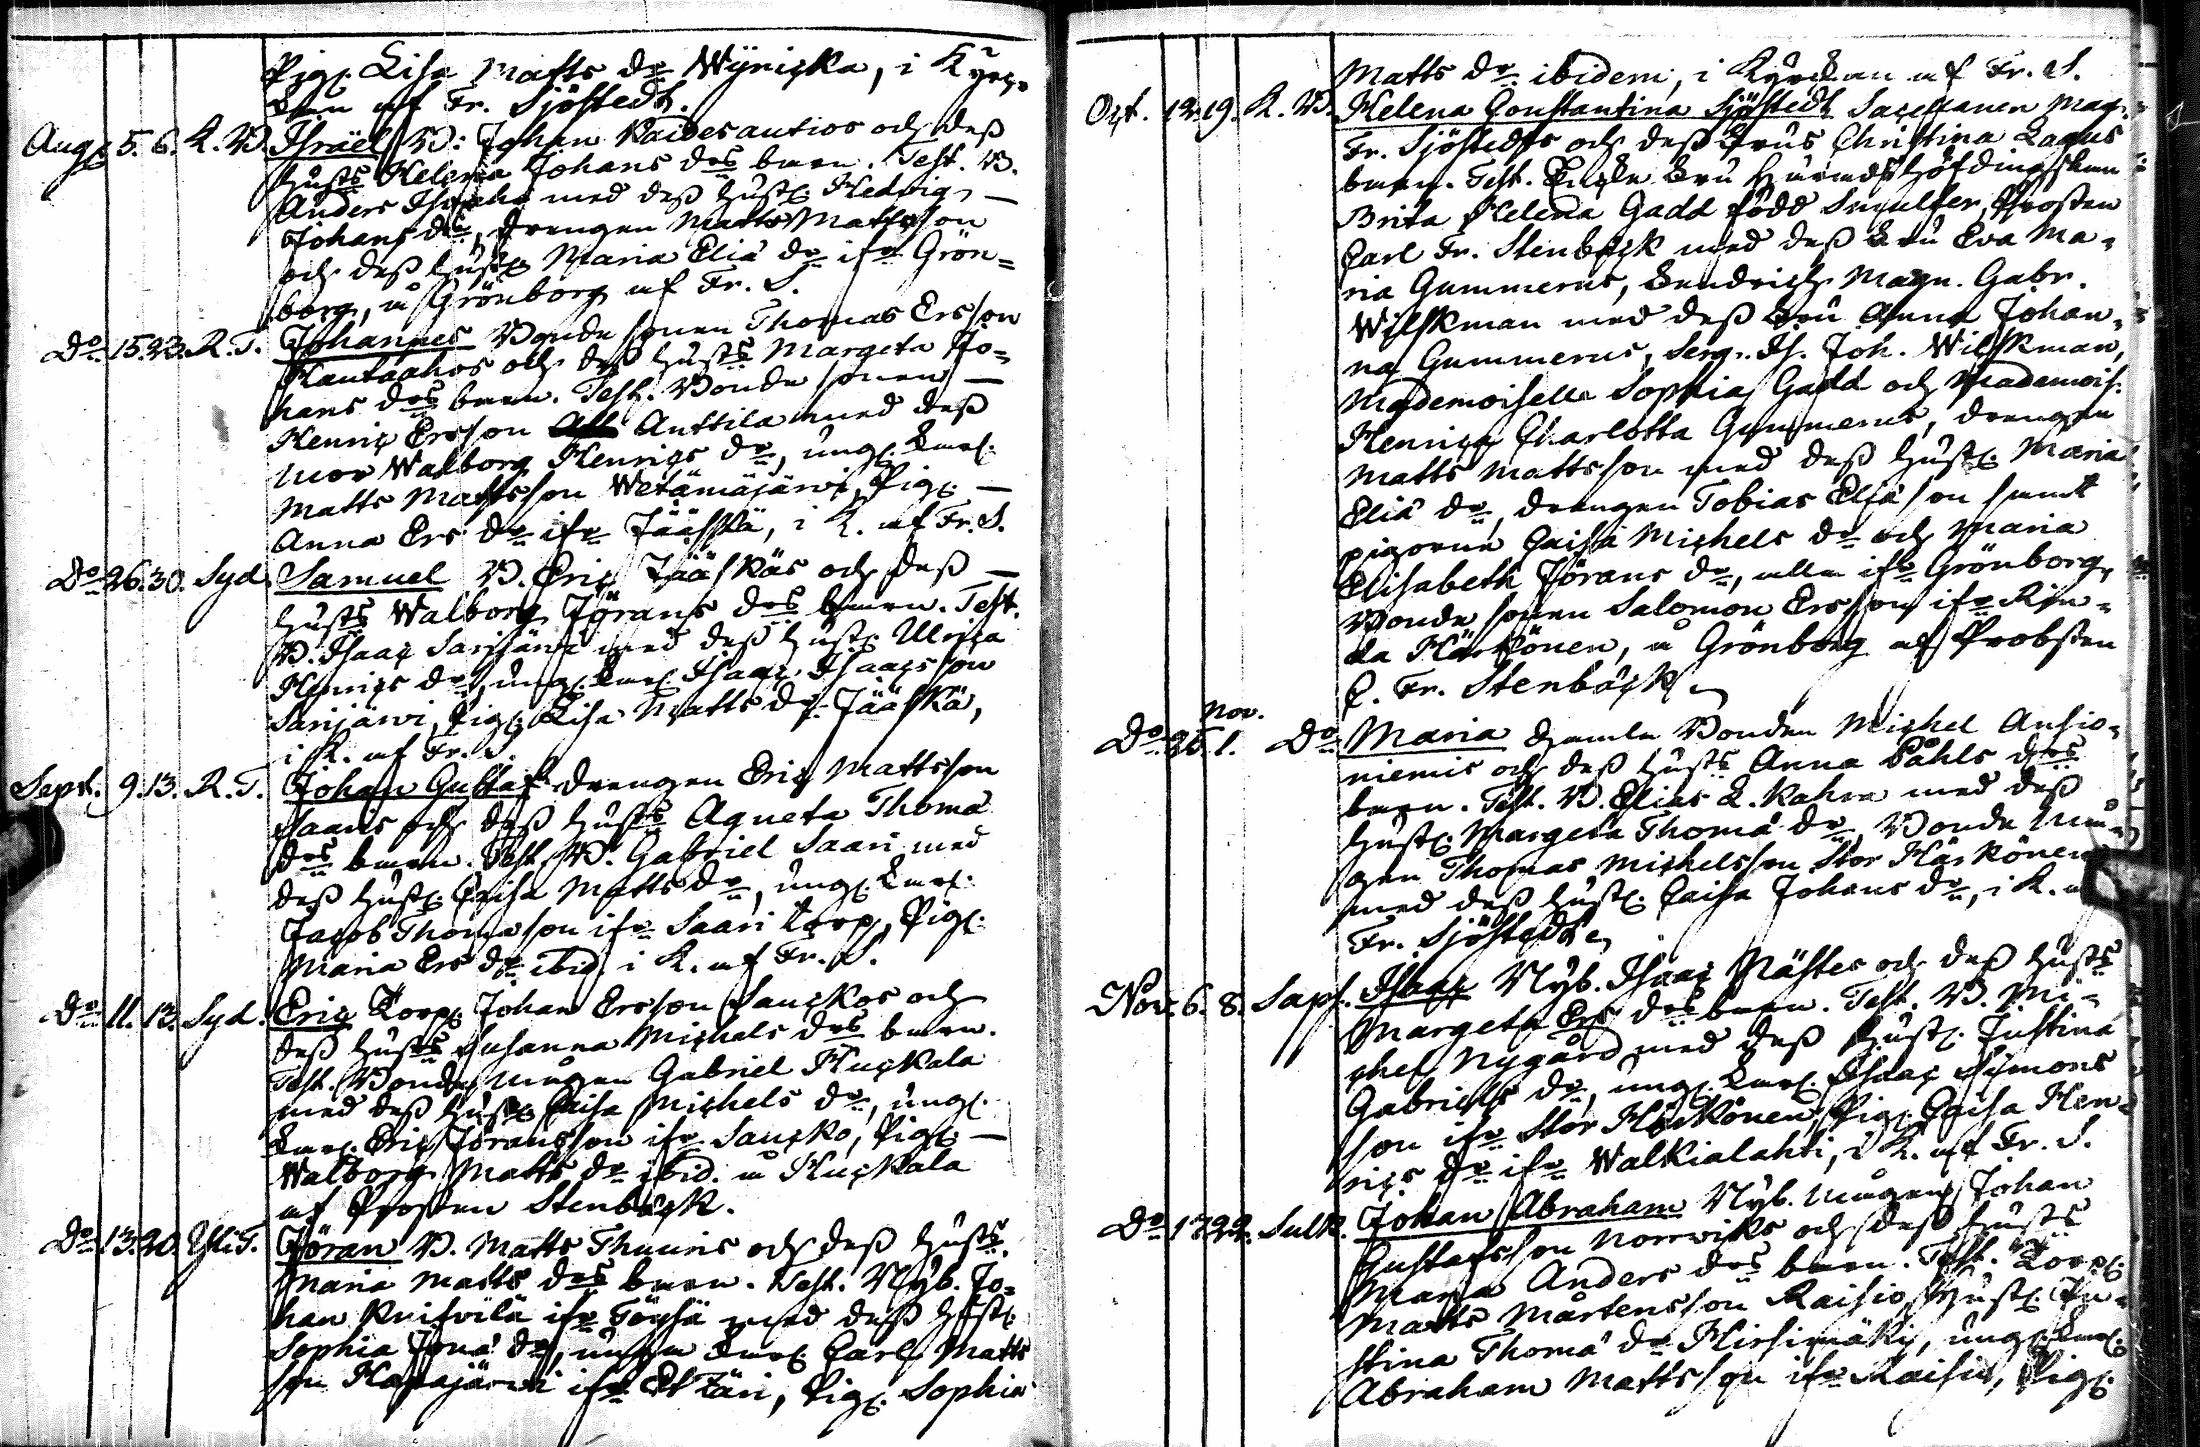 Pig. Lisa Matts dr Wÿricka, i Kyrc-
kan af Fr. Sjöstedt.
Aug. 5. 6. K. B. Israël B: Johan Kaidesautios och deß
hust: Helena Johans drs barn. Test. B.
Anders med deß hust. Hedvig
Johans dr, Drengen Matts Mattsson
och deß hust. Maria Eliæ dr ifr Grön=
borg, å Grönborg af Fr. S.
Do 15. 23. R. T. Johannes Bonde sonen Thomas Ersson
Kautaahos och deß hust: Margeta Jo=
hans drs barn. Test. Bonde sonen
Henric Ersson Anttila med deß
mor Walborg Henrics dr, ungk. Karl.
Matts Mattsson Wetämäjärvi, Pig.
Anna Ers dr ifr Jääskä, i K. af Fr. S.
Do 26. 30. Syd. Samuel B. Eric Jääskäs och deß
hust: Walborg Jörans drs barn. Test.
B. Isaac Sarijärvi med deß hust. Ulrica
Henrics dr, ung. Karl. Isaac Isaacsson
Sarijärvi, Pig. Lisa Matts dr Jääskä,
i K. af Fr. S.
Sept. 9. 13. R. T. Johan Gustaf drengen Eric Mattsson
Saaris och deß hust: Agneta Thomæ
drs barn. Test. B. Gabriel Saari med
deß hust. Caisa Matts dr, ung. Karl.
Jacob Thomasson ifr Saari Torp, Pig.
Maria Ers dr ibid. i K. af Fr. S.
Do 11. 13. Syd. Eric Torp. Johan Ersson Sauckos och
deß hust: Susanna Michels drs barn.
Test. Bonde mågen Gabriel Huckala
med deß hust. Caisa Michels dr, ung.
Karl. Eric Jöransson ifr Saucko, Pig.
Walborg Matts dr ibid. å Huckala
af Prosten Stenbäck.
Do 13. 20. Yli. T. Jöran B. Matts Thuuris och deß hust:
Maria Matts drs barn. Test. Nyb. Jo=
han Knisvilä ifr Töysä med deß hust.
Sophia Jonæ dr, unga Karl. Carl Matts
son Hapajärvi ifr Etzäri, Pig. Sophia
Matts dr ibidem, i Kyrckan af Fr. S.
Oct. 12. 19. K. B. Helena Constantina Sjöstedt Sacellanen Mag.
Fr. Sjöstedts och deß Frus Christina Lagus
barn. Test. Encke Fru Häradshöfdingskan
Brita Helena Gadd född Snulfer, Prosten
Carl Fr. Stenbäck med deß Fru Eva Ma=
ria Gummerus, Magn. Gabr.
Wilskman med deß Fru Anna Johan=
na Gummerus, Serg. Is. Joh. Wilskman,
Mademoiselle Sophia Gadd och Mademois.
Henrica Charlotta Gummerus, drengen
Matts Mattsson med deß hust. Maria
Eliæ dr, drengen Tobias Eliæson samt
pigorna Caisa Michels dr och Maria
Elisabeth Jörans dr, alla ifr Grönborg,
Bonde sonen Salomon Ersson ifr Rin=
da Härkönen, å Grönborg af Probsten
C. Fr. Stenbäck
Do 25. Nov. 1. Do Maria gamla Bonden Michel Ansio=
niemis och deß hust: Anna Påhls drs
barn. Test. B. Elias L. Kahra med deß
hust. Margeta Thomæ dr, Bonde må=
gen Thomas Michelsson Stor Härkönen
med deß hust. Caisa Johans dr, i K. a
Fr. Sjöstedt
Nov. 6. 8. Saps. Isaac Nyb. Isaac Mästes och deß hust:
Margeta Ers drs barn. Test. B. Mi=
chel Nygård med deß hust. Justina
Gabriels dr, ung. Karl. Isaac Simons
son ifr Stor Härkönen, Pig. Caisa Hen=
rics dr ifr Walkialahti, i K. af Fr. S.
Do 17. 22. Sulk. Johan Abraham Nyb. mågen Johan
Gustafsson Norrviks och deß hust:
Maria Anders drs barn. Test. Torp.
Matts Mårtensson Raisio, Hust. Ju=
stina Thomæ dr Hirsimäki, ung. Karl.
Abraham Mattsson ifr Raisio, Pig.